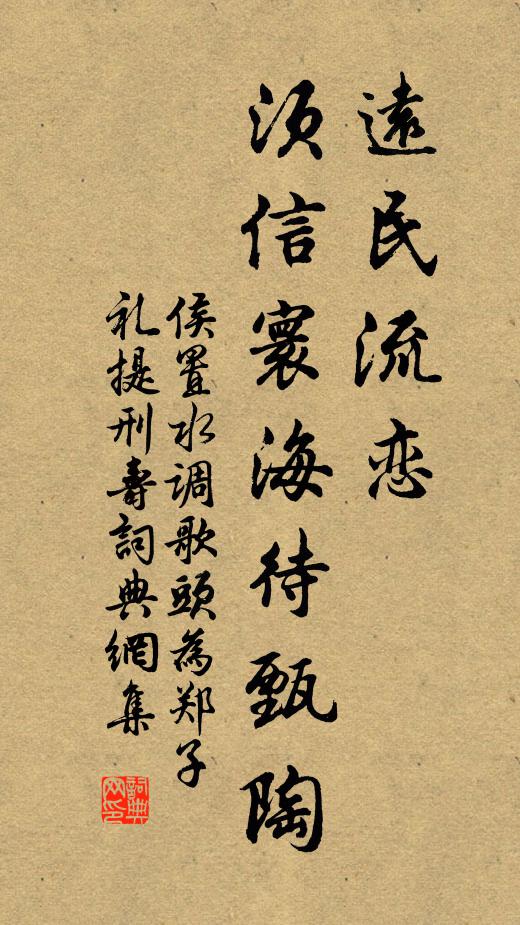 遠民流恋
須信寰海待甄陶
侯置水调歌頭為郑子
礼提刑壽詞典網集
詞典网印